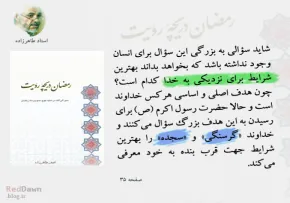 استاد طاهرزاده
رمضان دریچه رویت
شاید سؤالی به بزرگی این سؤال برای انسان
وجود نداشته باشد که بخواهد بداند بهترین
شرایط برای نزدیکی به خدا کدام است؟
چون هدف اصلی و اساسی هرکس خداوند
است و حالا حضرت رسول اکرم (ص) برای
رسیدن به این هدف بزرگ سؤال می‌کنند و
خداوند «گرسنگی» و «سجده» را بهترین
شرایط جهت قرب بنده به خود معرفی
می‌کند.
صفحه ۳۵
RedDawn
.blog.ir